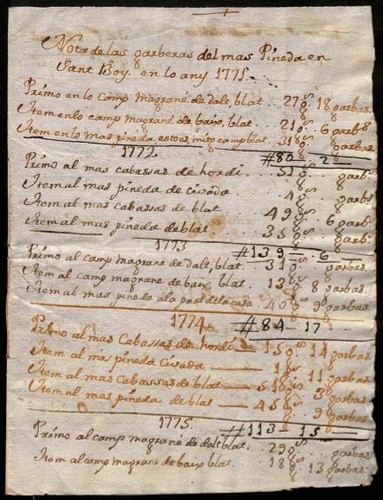 Nota de las garberas del mas Pineda en
Sant Boy. en lo any 1775.
Primo en lo camp magrané de dalt, blat. 27 g.s 18 garbas.
Item en lo camp magrané de baix, blat. 21 g.s 6 garbs.
Item en lo mas pineda estoes, mitg camp blat. 31 g.s 8 garbs.
#80 2
1772
Primo al mas cabassas de hordi. 51 g.s garbs.
Item al mas pineda de civada 4 g.s garbs.
Item al mas cabassas de blat. 49 g.s 6 garbs.
Item al mas pineda de blat. 35 g.s garbs.
#139 6
1773
Primo al camp magrané de dalt, blat. 31 g.s garbas.
Item al camp magrané de baix, blat. 13 g.s 8 garbas.
Item al mas pineda a la part de la casa 40 g.s 9 garbas.
#84 17
1774
Primo al mas Cabassas de hordi 15 g.s 14 garbas.
Item al mas pineda Civada 1 g.s 11 garbas.
Item al mas Cabassas de blat 51 g.s 3 garbas.
Item al mas pineda de blat 45 g.s 9 garbas.
#113 15
1775.
Primo al camp magrané de dalt blat 29 g.s garbas.
Item al camp magrané de baix blat. 18 g.s 13 garbas.